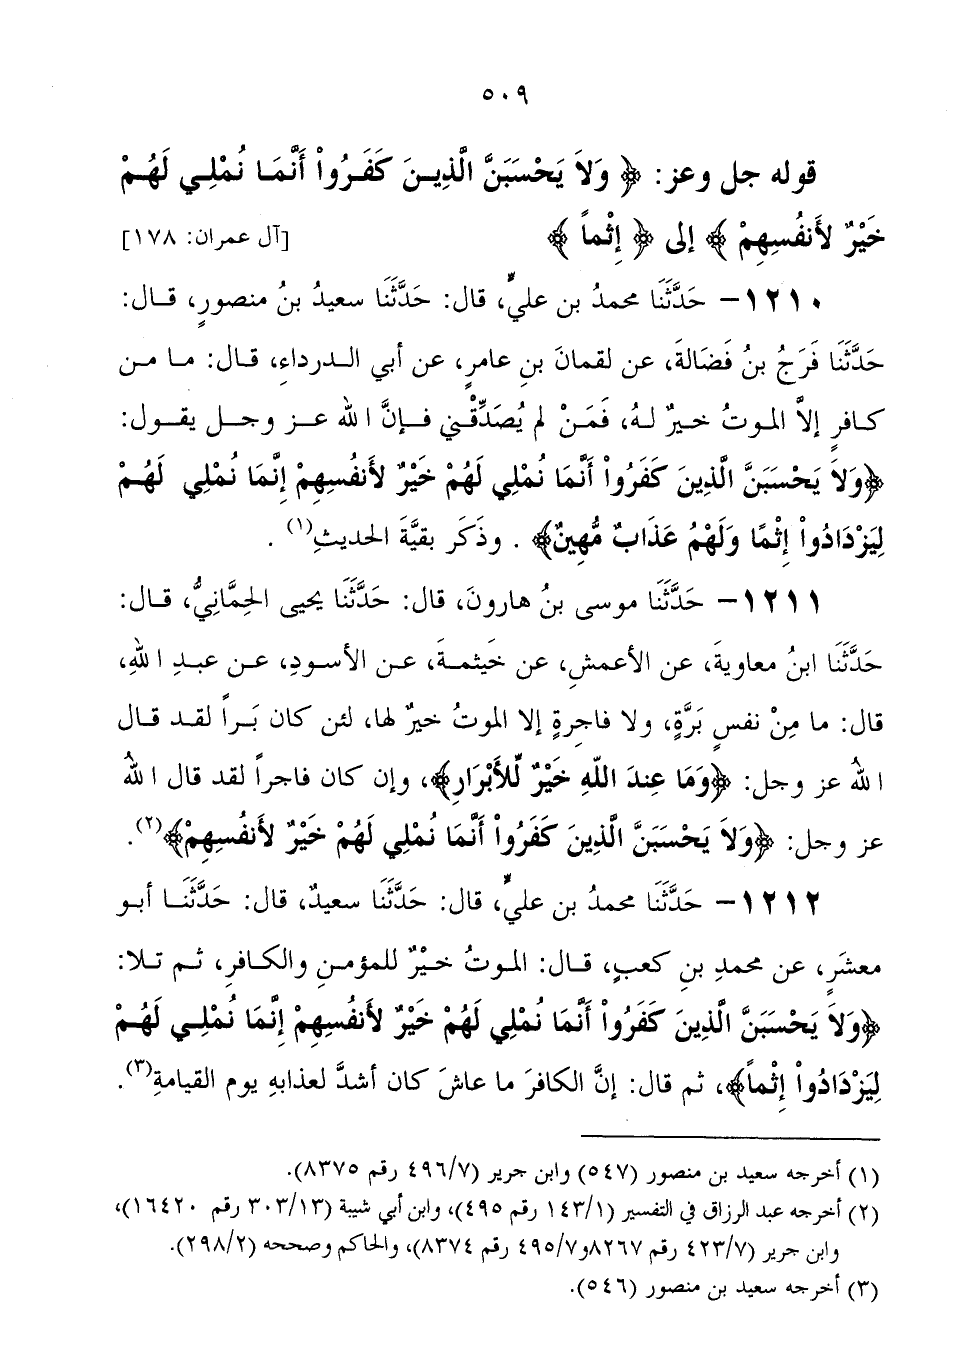 ٥٠٩
قوله جل وعز: ﴿ وَلاَ يَحْسَبَنَّ الَّذِينَ كَفَرُواْ أَنَّمَا نُمْلِي لَهُمْ
خَيْرٌ لأَنفُسِهِمْ ﴾ إلى ﴿ إِثْماً ﴾ [آل عمران: ١٧٨]
١٢١٠ – حَدَّثَنَا محمدُ بن عليٍّ، قال: حَدَّثَنَا سعيدُ بنُ منصورٍ، قال:
حَدَّثَنَا فَرَجُ بنُ فَضَالةَ، عن لقمانَ بنِ عامرٍ، عن أبي الدرداءِ، قال: ما من
كافرٍ إلاَّ الموتُ خيرٌ لهُ، فَمَنْ لم يُصَدِّقْني فإنَّ الله عز وجل يقول:
﴿وَلاَ يَحْسَبَنَّ الَّذِينَ كَفَرُواْ أَنَّمَا نُمْلِي لَهُمْ خَيْرٌ لأَنفُسِهِمْ إِنَّمَا نُمْلِي لَهُمْ
لِيَزْدَادُواْ إِثْمًا وَلَهْمُ عَذَابٌ مُّهِينٌ﴾ . وذَكَر بقيَّةَ الحديثِ(١) .
١٢١١ – حَدَّثَنَا موسى بنُ هارونَ، قال: حَدَّثَنَا يحيى الحِمَّانِيُّ، قال:
حَدَّثَنَا ابنُ معاويةَ، عن الأعمشِ، عن خَيثمةَ، عن الأسودِ، عن عبدِ اللهِ،
قال: ما مِنْ نفسٍ بَرَّةٍ، ولا فاجرةٍ إلا الموتُ خيرٌ لها، لئن كان بَراً لقد قال
اللهُ عز وجل: ﴿وَمَا عِندَ اللّهِ خَيْرٌ لِّلأَبْرَارِ﴾، وإن كان فاجراً لقد قال اللهُ
عز وجل: ﴿وَلاَ يَحْسَبَنَّ الَّذِينَ كَفَرُواْ أَنَّمَا نُمْلِي لَهُمْ خَيْرٌ لأَنفُسِهِمْ﴾(٢).
١٢١٢ – حَدَّثَنَا محمدُ بن عليٍّ، قال: حَدَّثَنَا سعيدٌ، قال: حَدَّثَنَا أبو
معشَرٍ، عن محمدِ بنِ كعبٍ، قال: الموتُ خيْرٌ للمؤمنِ والكافرِ، ثم تلا:
﴿وَلاَ يَحْسَبَنَّ الَّذِينَ كَفَرُواْ أَنَّمَا نُمْلِي لَهُمْ خَيْرٌ لأَنفُسِهِمْ إِنَّمَا نُمْلِي لَهُمْ
لِيَزْدَادُواْ إِثْماً﴾، ثم قال: إنَّ الكافرَ ما عاشَ كان أشدَّ لعذابهِ يوم القيامةِ(٣).
(١) أخرجه سعيد بن منصور (٥٤٧) وابن جرير (٤٩٦/٧ رقم ٨٣٧٥).
(٢) أخرجه عبد الرزاق في التفسير (١٤٣/١ رقم ٤٩٥)، وابن أبي شيبة (٣٠٣/١٣ رقم ١٦٤٢٠)،
وابن جرير (٤٢٣/٧ رقم ٨٢٦٧و٤٩٥/٧ رقم ٨٣٧٤)، والحاكم وصححه (٢٩٨/٢).
(٣) أخرجه سعيد بن منصور (٥٤٦).